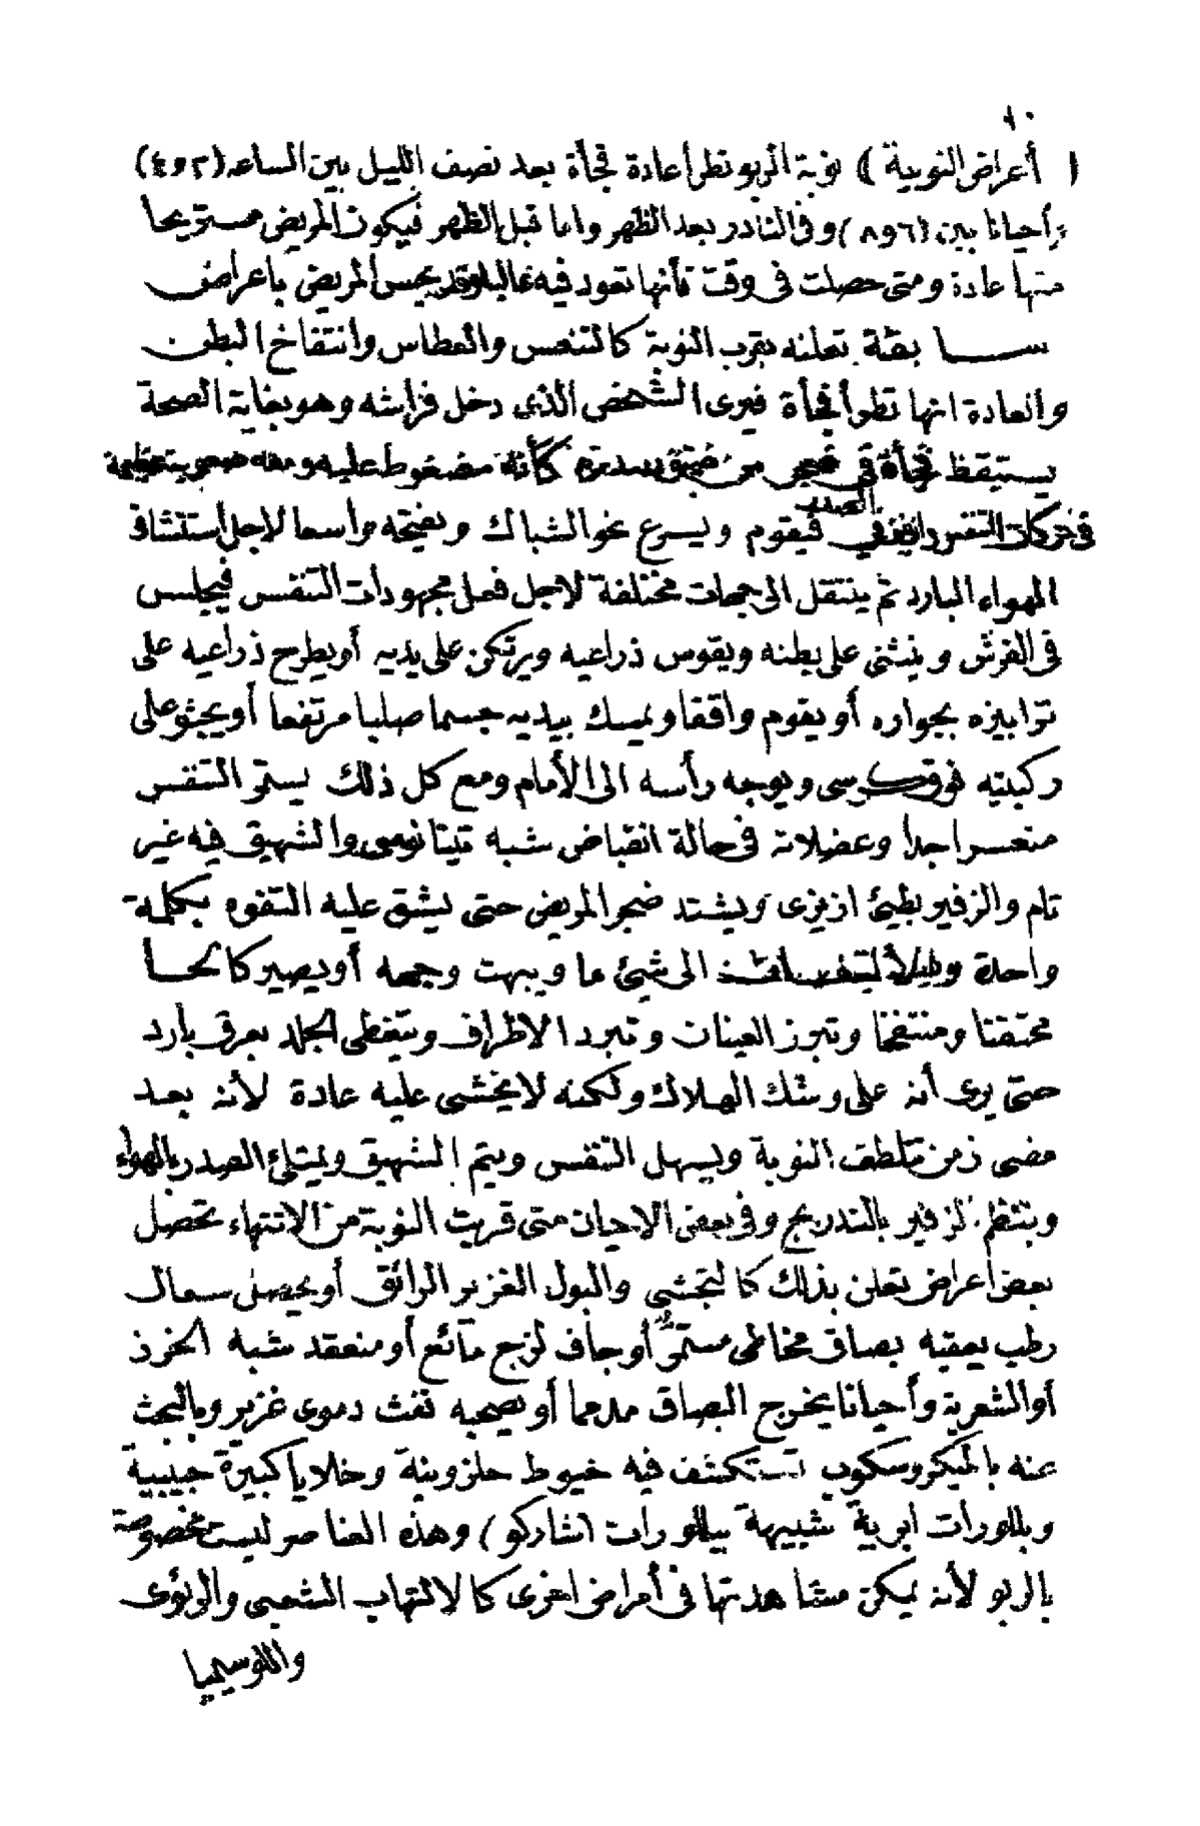 ١٠
( أعراض النوبية ) نوبة الربو تطرأ عادة فجأة بعد نصف الليل بين الساعه (٢ و ٤)
وأحيانا بين (٦ و ٨) وفى النادر بعد الظهر واما قبل الظهر فيكون المريض مستريحا
منها عادة ومتى حصلت فى وقت فأنها تعود فيه غالبا وقد يحس المريض باعراض
ســـا بقة تعلنه بقرب النوبة كالتنعس والعطاس وانتفاخ البطن
والعادة انها تطرأ فجأة فيرى الشخص الذى دخل فراشه وهو بغاية الصحة
يستيقظ فجأة فى ضجر من ضيق بصدره كأنه مضغوط عليه ومعه صعوبة عظيمة
فى حركات التنفس فيقوم ويسرع نحو الشباك ويفتحه واسعا لاجل استنشاق
الصدر
الهواء البارد ثم ينتقل الى جهات مختلفة لاجل فعل مجهودات التنفس فيجلس
فى الفرش وينثنى على بطنه ويقوس ذراعيه ويرتكن على يديه أو يطرح ذراعيه على
ترابيزه بجواره أو يقوم واقفا ويمسك بيديه جسما صلبا مرتفعا أو يجثو على
ركبتيه فوق كرسى ويوجه رأسه الى الأمام ومع كل ذلك يستمر التنفس
متعسرا جدا وعضلاته فى حالة انقباض شبه تيتانوسى والشهيق فيه غير
تام والزفير بطيئ ازيزى ويشتد ضجر المريض حتى يشق عليه التفوه بكلمة
واحدة الى شيئ ما ويبهت وجهه أو يصير كالحـــأ
محتقنا ومنتفخا وتبرز العينان وتبرد الاطراف ويتغطى الجلد بعرق بارد
حتى يرى أنه على وشك الهلاك ولكنه لا يخشى عليه عادة لأنه بعد
مضى زمن تتلطف النوبة ويسهل التنفس ويتم الشهيق ويمتلئ الصدر بالهواء
وينتظم الزفير بالتدريج وفى بعض الاحيان متى قربت النوبة من الانتهاء تحصل
بعض أعراض تعلن بذلك كالتجشى والبول الغزير الرائق أو يحصل سعال
رطب يعقبه بصاق مخاطى مستمر أو جاف لزج مآئع أو منعقد شبه الخرز
أو الشعرية وأحيانا يخرج البصاق مدمما أو يصحبه نفث دموى غزير وبالبحث
عنه بالميكروسكوب تستكشف فيه خيوط حلزونية وخلايا كبيرة حبيبية
وبللورات ابرية شبيهة ببللورات (شاركو) وهذه العناصر ليست مخصوصة
بالربو لأنه يمكن مشاهدتها فى أمراض اخرى كالالتهاب الشعبى والرئوى
واللوسيميا